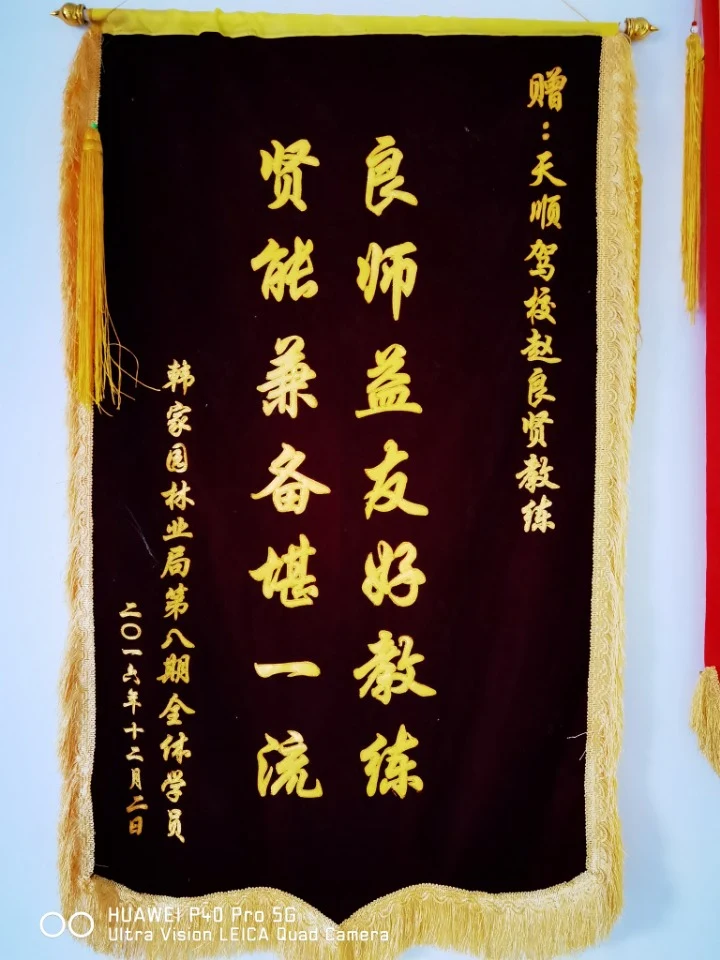 赠:天顺驾校赵良贤教练
良师益友好教练
贤能兼备堪一流
韩家园林业局第八期全体学员
二〇一六年十二月二日
HUAWEI P40 Pro 5G
Ultra Vision LEICA Quad Camera